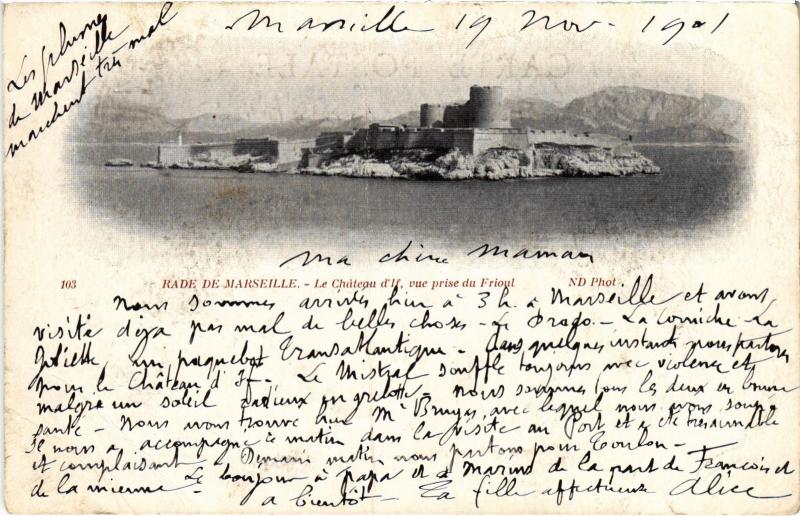 Marseille 19 Nov. 1901
Les plumes
de Marseille
marchent très mal
Ma chère Maman
103 RADE DE MARSEILLE. - Le Château d'If, vue prise du Frioul ND Phot
Nous sommes arrivés hier à 3 h. à Marseille et avons
visité déjà pas mal de belles choses - Le Prado - La Corniche - La
Joliette, un paquebot transatlantique - Dans quelques instants nous partons
pour le Château d'If - Le Mistral souffle toujours avec violence et
malgré un soleil radieux on grelotte. Nous sommes tous les deux en bonne
santé - Nous avons trouvé hier Mr Bruyas, avec lequel nous avons soupé
Il nous a accompagné ce matin dans la visite au Port et a été très aimable
et complaisant - Demain matin nous partons pour Toulon -
Le bonjour à papa et à Marius de la part de François et
de la mienne - à bientôt - Ta fille affectueuse Alice